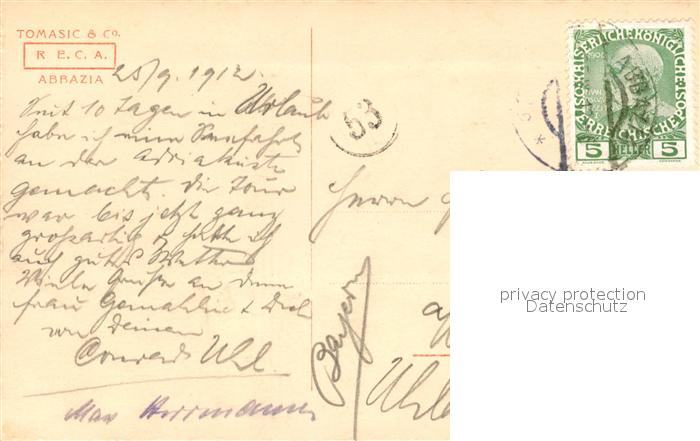 TOMASIC & Co.
R. E. C. A.
ABBAZIA
25/9. 1912.
Seit 10 Tagen in Urlaub
habe ich eine Seefahrt
an der Adriaküste
gemacht. Die Tour
war bis jetzt ganz
großartig & hatte ich
auch gutes Wetter
Viele Grüße an Deine
Frau Gemahlin & Dich
von Deinem
Conrad Uhl.
Max Herrmann
53
Herrn
Bayern
1908
KAISERLICHE KÖNIGLICHE
ÖSTERREICHISCHE POST
5 HELLER 5
privacy protection
Datenschutz